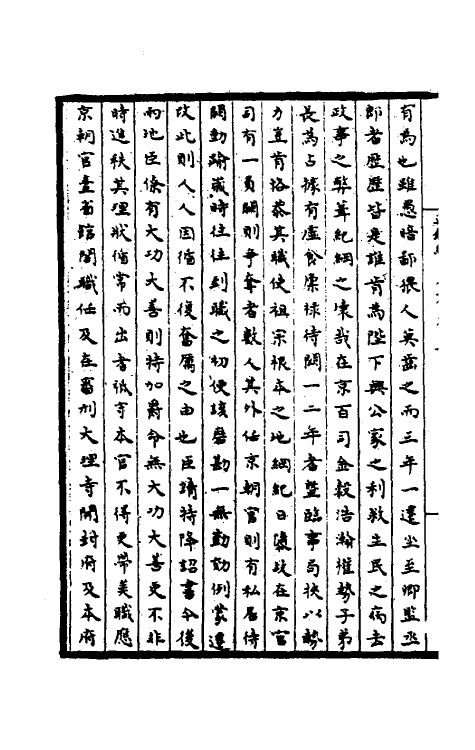 有為也雖愚暗鄙猥人莫齒之而三年一遷坐至卿監丞
郎者歷歷皆是誰肯為陛下興公家之利救生民之病去
政事之弊葺紀綱之壞哉在京百司金穀浩瀚權勢子弟
長為占據有虛食廩祿待闕一二年者暨臨事局挾以勢
力豈肯恪恭其職使祖宗根本之地綱紀日隳故在京官
司有一員闕則爭奪者數人其外任京朝官則有私居待
闕動踰歲時往往到職之初便該磨勘一無勤効例蒙遷
改此則人人因循不復奮厲之由也臣請特降詔書今後
兩地臣僚有大功大善則特加爵命無大功大善更不非
時進秩其理狀循常而出者秪守本官不得更帶美職應
京朝官臺省館閣職任及在審刑大理寺開封府及本府